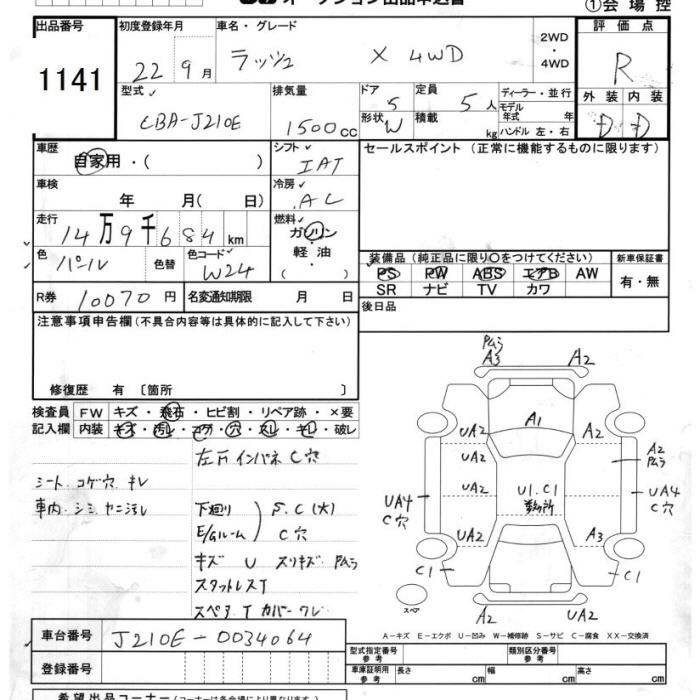 ①会 場 控
出品番号
1141
初度登録年月
22 9月
車名・グレード
ラッシュ X 4WD
2WD
・
4WD
評 価 点
R
外装 内装
D D
型式
CBA-J210E
排気量
1500cc
ドア
5
形状
W
定員
5人
積載
kg
ディーラー・並行
モデル
年式 年
ハンドル 左・右
車歴
自家用・( )
シフト
IAT
車検
年 月(日)
冷房
AC
走行
14万9千684km
燃料
ガソリン
・
軽油
・
( )
色
パール
色替
色コード
W24
R券
10070円
名変通知期限 月 日
セールスポイント(正常に機能するものに限ります)
装備品(純正品に限り○をつけてください)
PS PW ABS エアB AW
SR ナビ TV カワ
新車保証書
有・無
後日品
注意事項申告欄(不具合内容等は具体的に記入して下さい)
修復歴 有〔箇所 〕
検査員
記入欄
FW キズ・飛石・ヒビ割・リペア跡・×要
内装 キズ・汚レ・コゲ・穴・スレ・キレ・破レ
左右インパネ C穴
シート、コゲ穴 キレ
車内、シミ、ヤニ汚レ
下廻り
E/Gルーム
S.C(大)
C穴
キズ U スリキズ Pムラ
スタットレスT
スペアT カバー ワレ
Pムラ
A3
A2
A1
UA2
A2
UA2
A2
Pムラ
UA2
UA4
C穴
U1.C1
数ヶ所
UA4
C穴
UA2
A3
C1
C1
スペア
A2
UA2
A－キズ E－エクボ U－凹み W－補修跡 S－サビ C－腐食 XX－交換済
車台番号
J210E-0034064
登録番号
型式指定番号
参考
類別区分番号
参考
車庫証明用
参考
長さ cm
幅 cm
高さ cm
希望出品コーナー